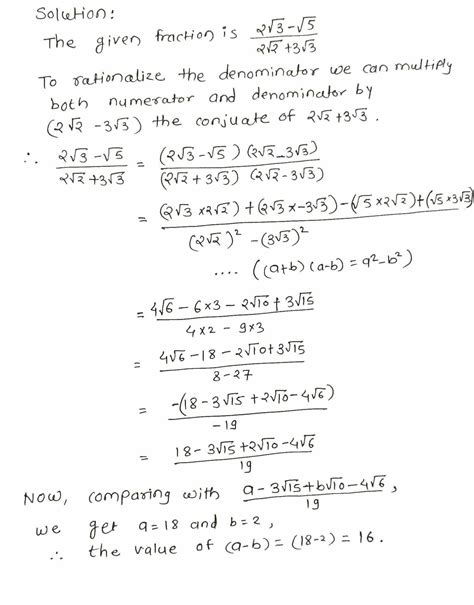 Solution:
The given fraction is (2√3 - √5)/(2√2 + 3√3)
To rationalize the denominator we can multiply
both numerator and denominator by
(2√2 - 3√3) the conjuate of 2√2 + 3√3.
∴ (2√3 - √5)/(2√2 + 3√3) = ((2√3 - √5) (2√2 - 3√3))/((2√2 + 3√3) (2√2 - 3√3))
= ((2√3 × 2√2) + (2√3 × -3√3) - (√5 × 2√2) + (√5 × 3√3))/((2√2)² - (3√3)²)
.... ((a+b) (a-b) = a² - b²)
= (4√6 - 6×3 - 2√10 + 3√15)/(4×2 - 9×3)
= (4√6 - 18 - 2√10 + 3√15)/(8 - 27)
= (-(18 - 3√15 + 2√10 - 4√6))/(-19)
= (18 - 3√15 + 2√10 - 4√6)/19
Now, comparing with (a - 3√15 + b√10 - 4√6)/19,
we get a = 18 and b = 2,
∴ the value of (a-b) = (18-2) = 16.